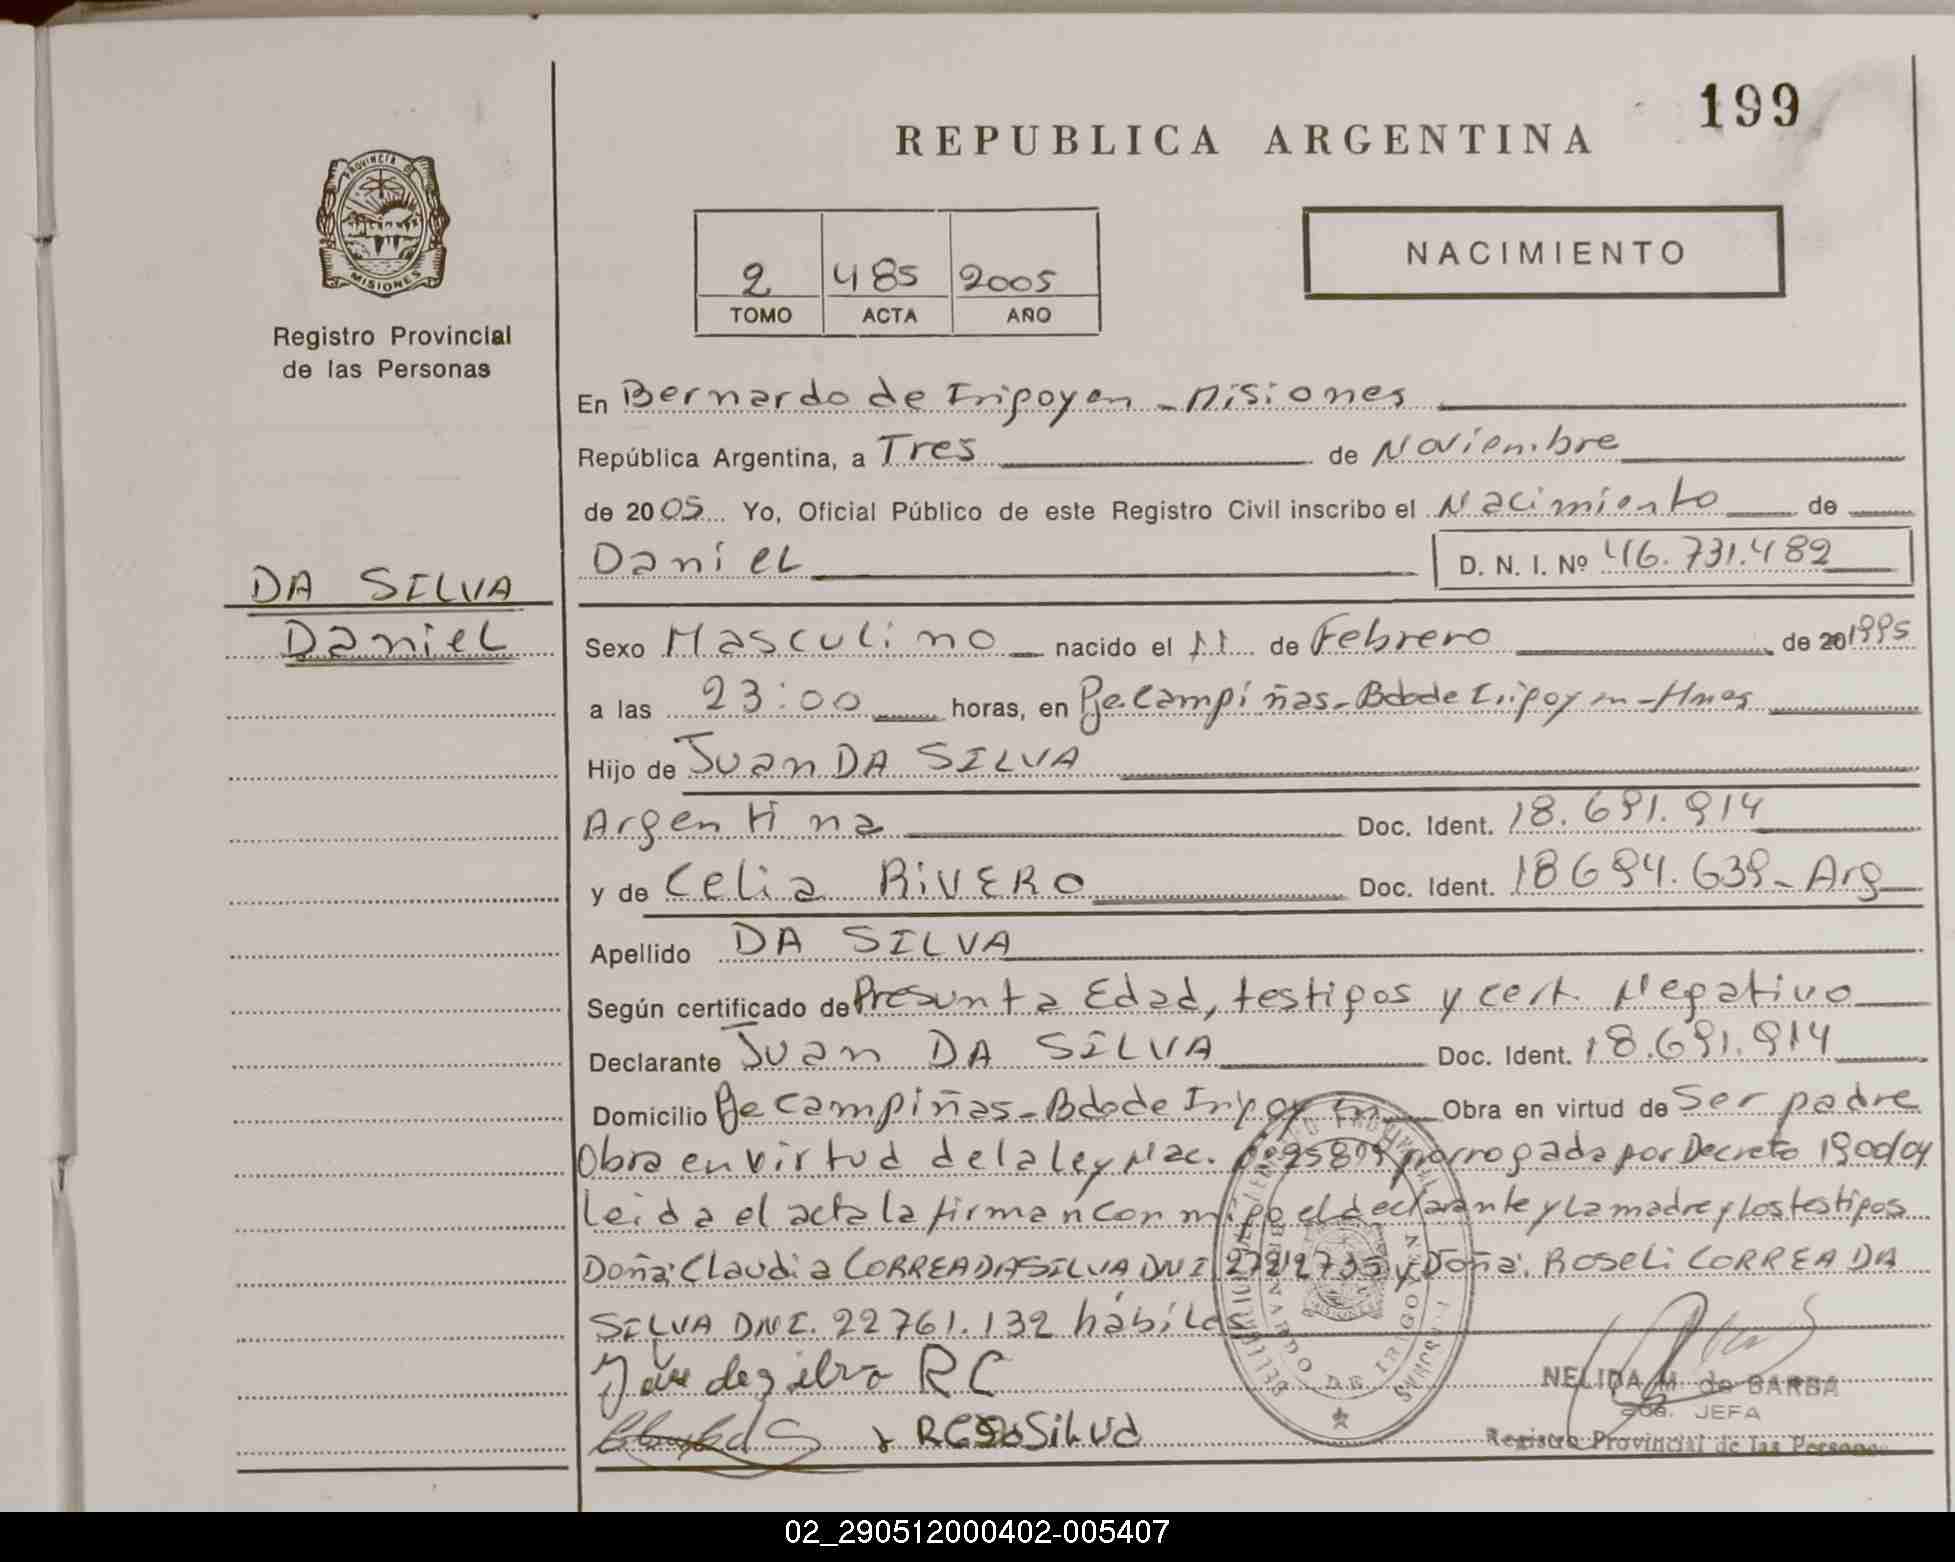 199
REPUBLICA ARGENTINA
PROVINCIA DE MISIONES
Registro Provincial
de las Personas
2 485 2005
TOMO ACTA AÑO
NACIMIENTO
En Bernardo de Irigoyen - Misiones
República Argentina, a Tres de Noviembre
de 2005 Yo, Oficial Público de este Registro Civil inscribo el Nacimiento de
Daniel D. N. I. Nº 46.731.482
DA SILVA
Daniel
Sexo Masculino nacido el 11 de Febrero de 20 1995
a las 23:00 horas, en Pje Campiñas - Bdo de Irigoyen - Mnes
Hijo de Juan DA SILVA
Argentina Doc. Ident. 18.691.914
y de Celia RIVERO Doc. Ident. 18694.639 - Arg
Apellido DA SILVA
Según certificado de Presunta Edad, testigos y cert. Negativo
Declarante Juan DA SILVA Doc. Ident. 18.691.914
Domicilio Pje Campiñas - Bdo de Irigoyen Obra en virtud de Ser padre
Obra en virtud de la ley Nac. prorrogada por Decreto 1900/04
leida el acta la firman conmigo el declarante y la madre y los testigos
Doña: Claudia CORREA DA SILVA DNI y Doña: Roseli CORREA DA
SILVA DNI. 22761.132 hábiles
RC
NELIDA M. de BARBA
JEFA
Registro Provincial de las Personas
02_290512000402-005407